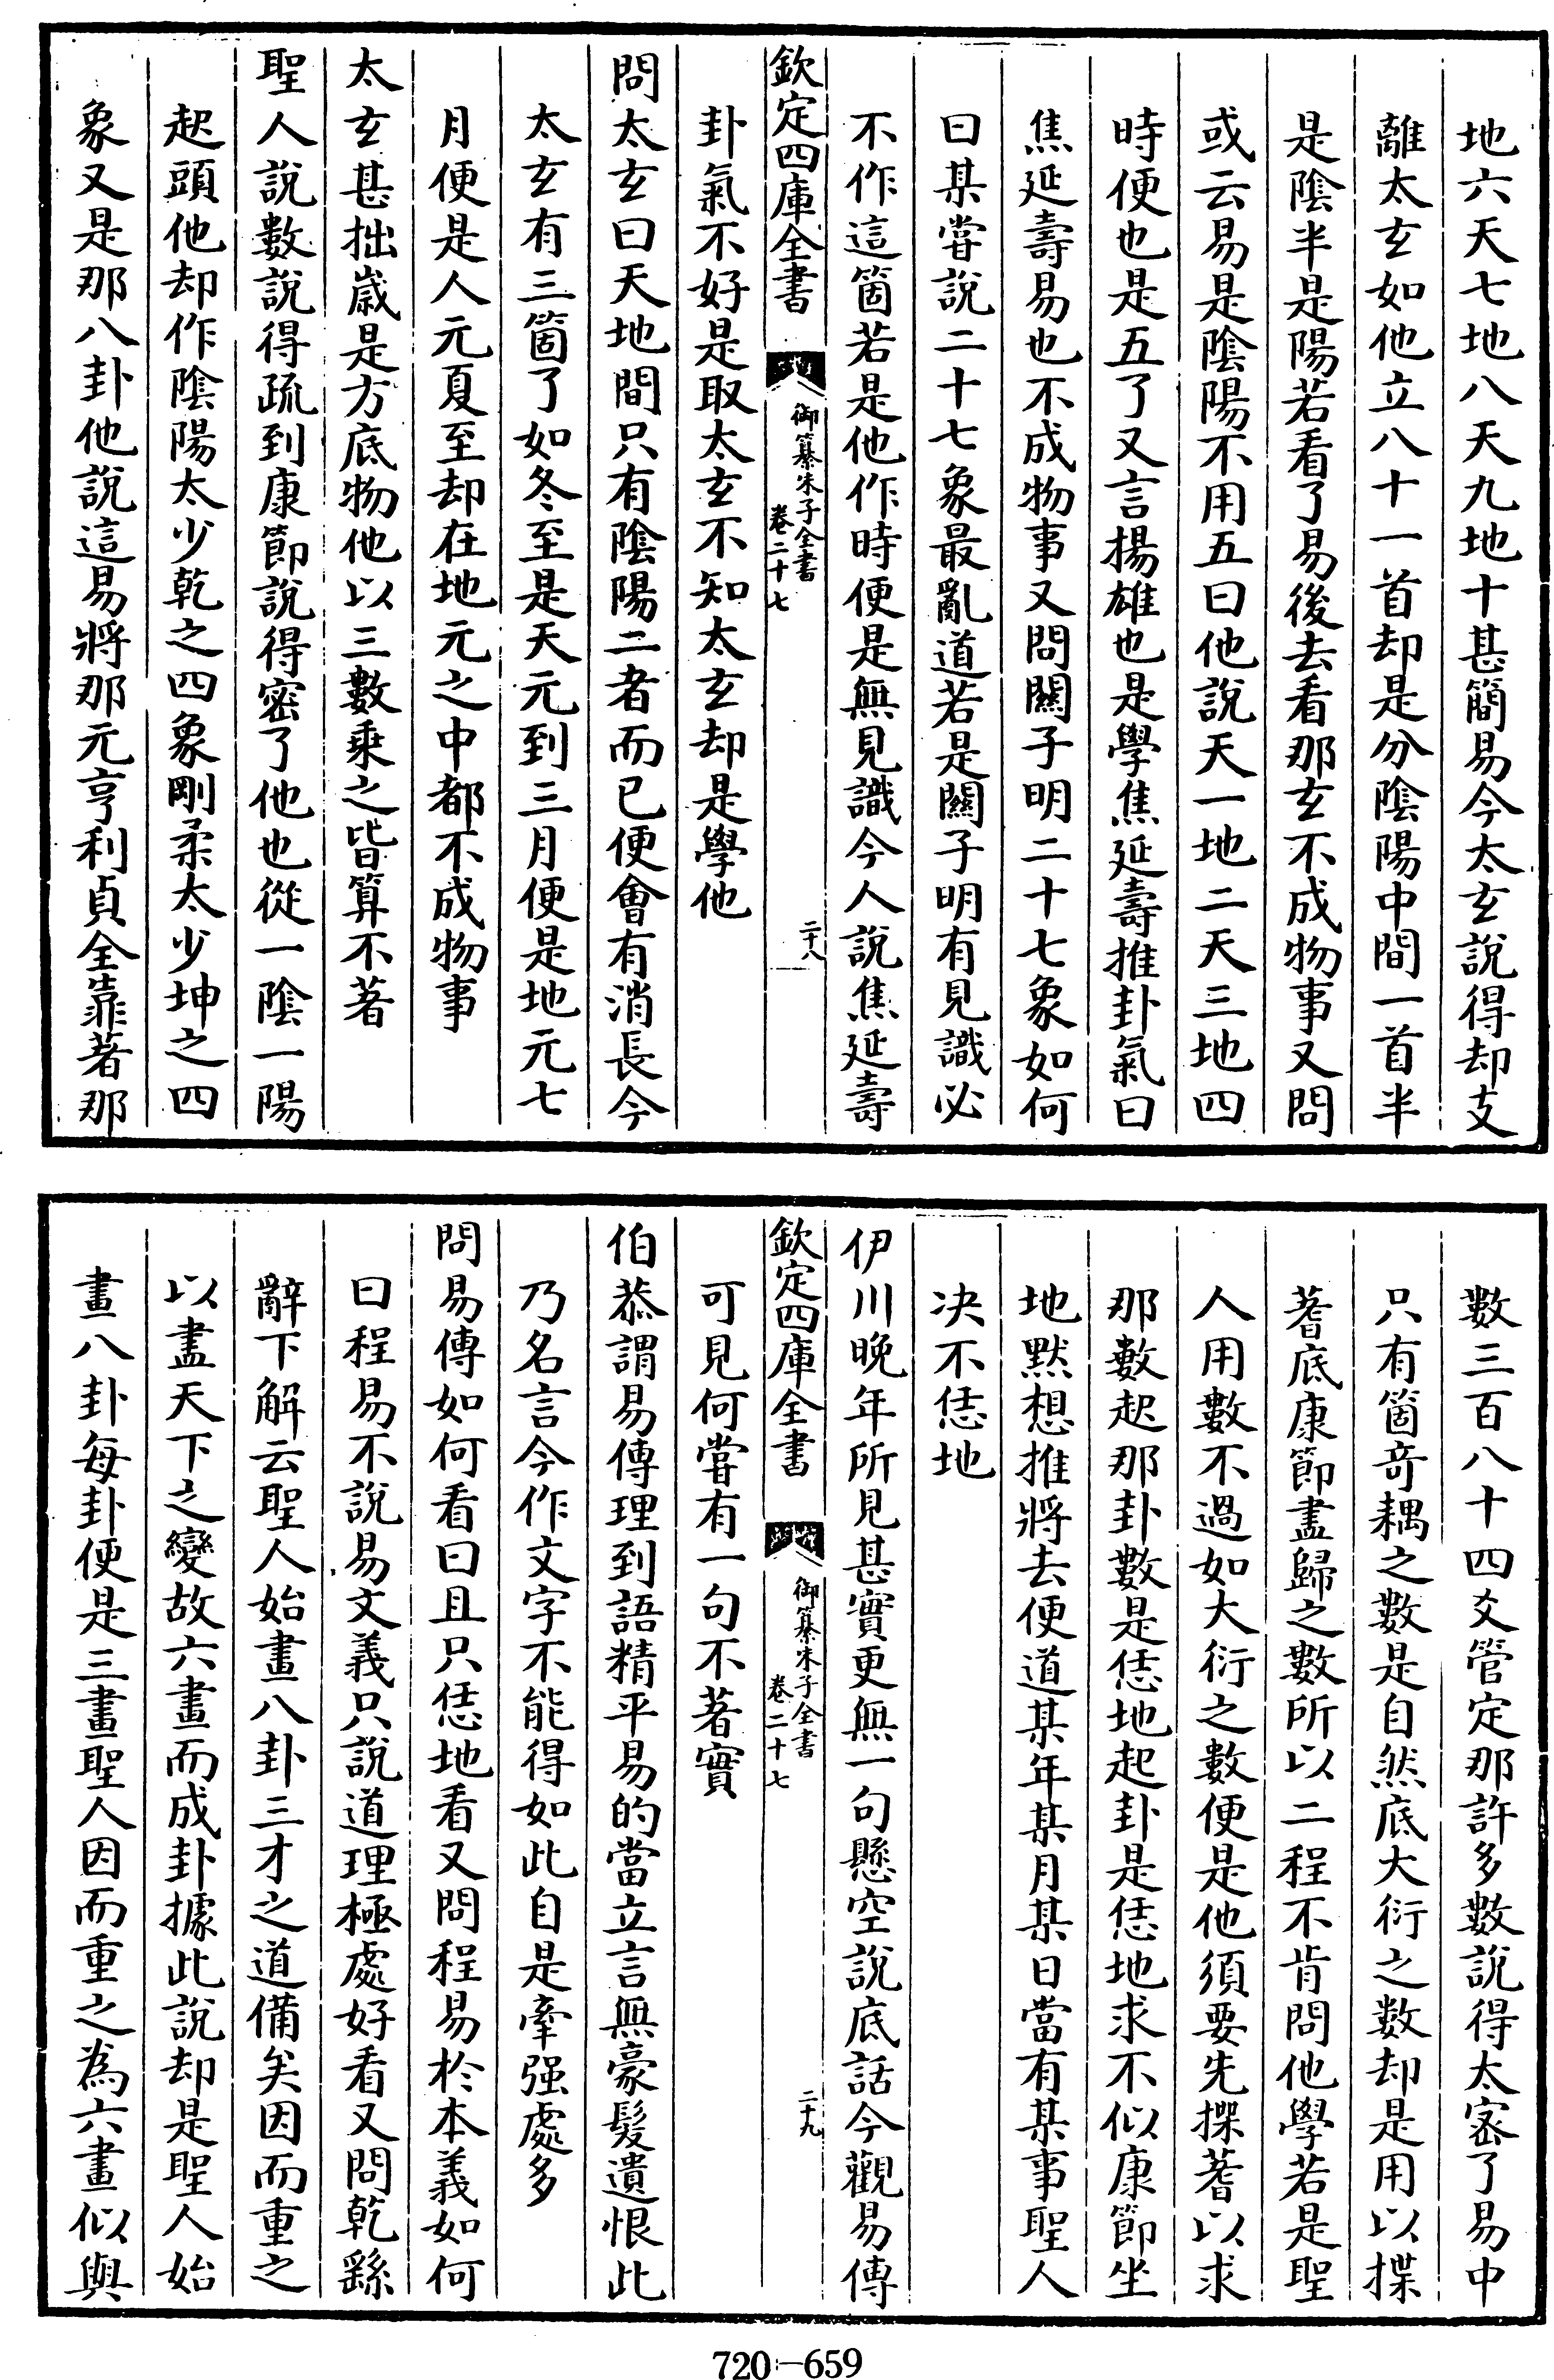 地六天七地八天九地十甚簡易今太玄說得却支
離太玄如他立八十一首却是分陰陽中間一首半
是陰半是陽若看了易後去看那玄不成物事又問
或云易是陰陽不用五曰他說天一地二天三地四
時便也是五了又言揚雄也是學焦延壽推卦氣曰
焦延壽易也不成物事又問關子明二十七象如何
曰某嘗說二十七象最亂道若是關子明有見識必
不作這箇若是他作時便是無見識今人說焦延壽
欽定四庫全書
御纂朱子全書
卷二十七
二十八
卦氣不好是取太玄不知太玄却是學他
問太玄曰天地間只有陰陽二者而已便會有消長今
太玄有三箇了如冬至是天元到三月便是地元七
月便是人元夏至却在地元之中都不成物事
太玄甚拙歲是方底物他以三數乘之皆算不著
聖人說數說得疏到康節說得密了他也從一陰一陽
起頭他却作陰陽太少乾之四象剛柔太少坤之四
象又是那八卦他說這易將那元亨利貞全靠著那
數三百八十四爻管定那許多數說得太密了易中
只有箇奇耦之數是自然底大衍之數却是用以揲
蓍底康節盡歸之數所以二程不肯問他學若是聖
人用數不過如大衍之數便是他須要先揲蓍以求
那數起那卦數是恁地起卦是恁地求不似康節坐
地默想推將去便道某年某月某日當有某事聖人
决不恁地
伊川晚年所見甚實更無一句懸空說底話今觀易傳
欽定四庫全書
御纂朱子全書
卷二十七
二十九
可見何嘗有一句不著實
伯恭謂易傳理到語精平易的當立言無豪髮遺恨此
乃名言今作文字不能得如此自是牽强處多
問易傳如何看曰且只恁地看又問程易於本義如何
曰程易不說易文義只說道理極處好看又問乾繇
辭下解云聖人始畫八卦三才之道備矣因而重之
以盡天下之變故六畫而成卦據此說却是聖人始
畫八卦每卦便是三畫聖人因而重之為六畫似與
720-659